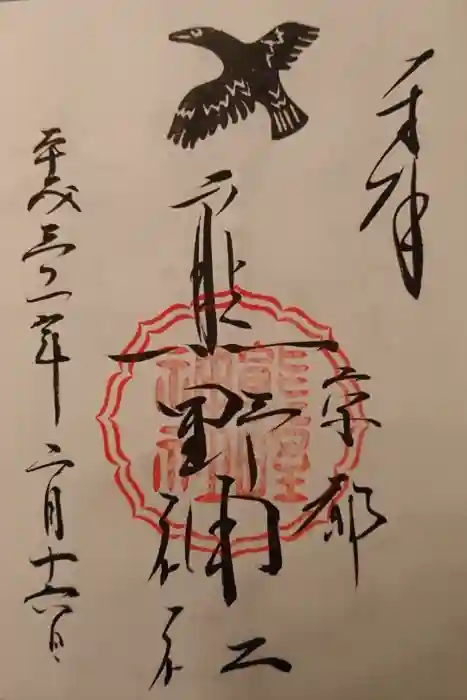 奉拝
京都
熊野神社
平成三十一年二月十六日
熊野
神社